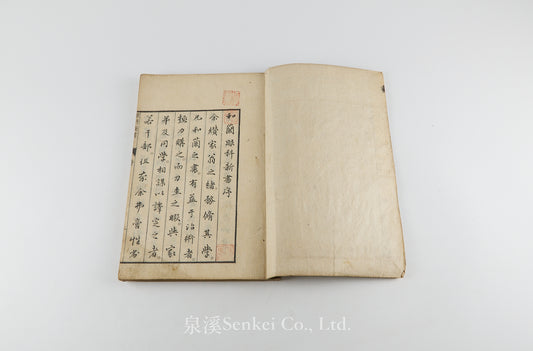 和蘭眼科新書序
余纘家翁之緒務脩其學
凡和蘭之書有益于治術者
極力購之而力至之暇與家
弟及同学相謀以譯定之者
若干部
泉溪Senkei Co., Ltd.